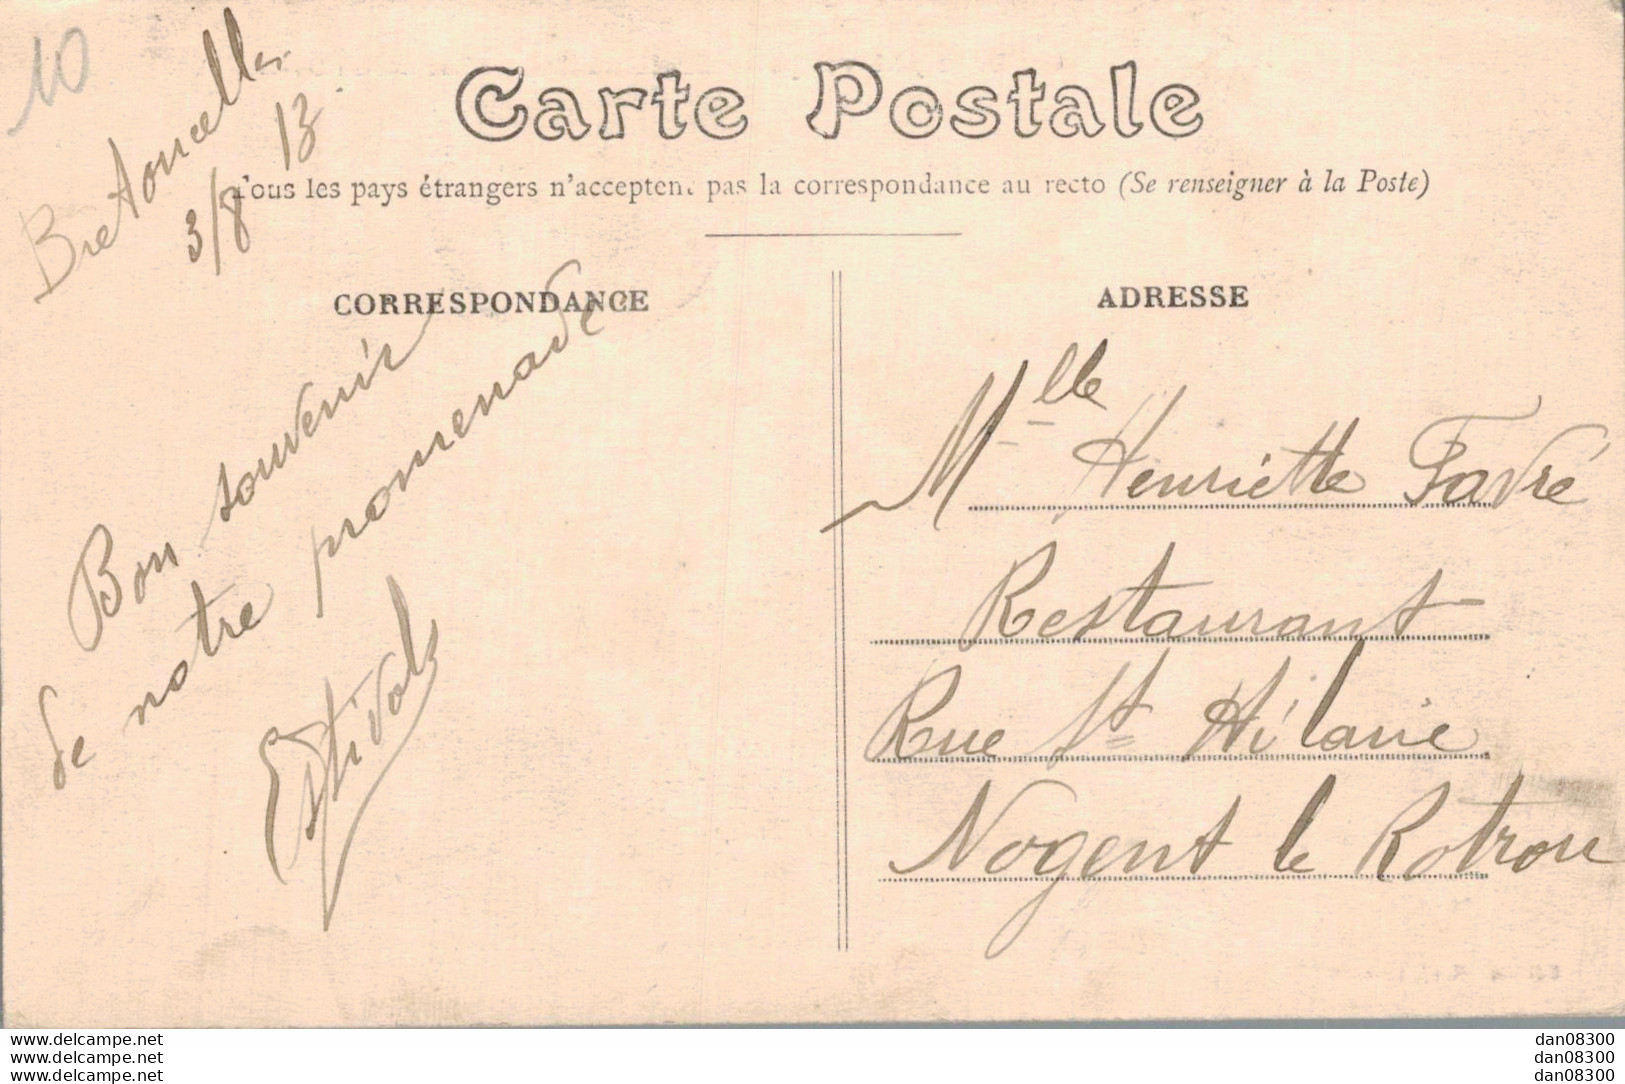 10
Bretoncelles
3/8 13
Carte Postale
Tous les pays étrangers n'acceptent pas la correspondance au recto (Se renseigner à la Poste)
CORRESPONDANCE
Bon souvenir
de notre promenade
Estivals
ADRESSE
Mlle Henriette Favré
Restaurant
Rue St Hilaire
Nogent le Rotrou
www.delcampe.net
www.delcampe.net
www.delcampe.net
dan08300
dan08300
dan08300